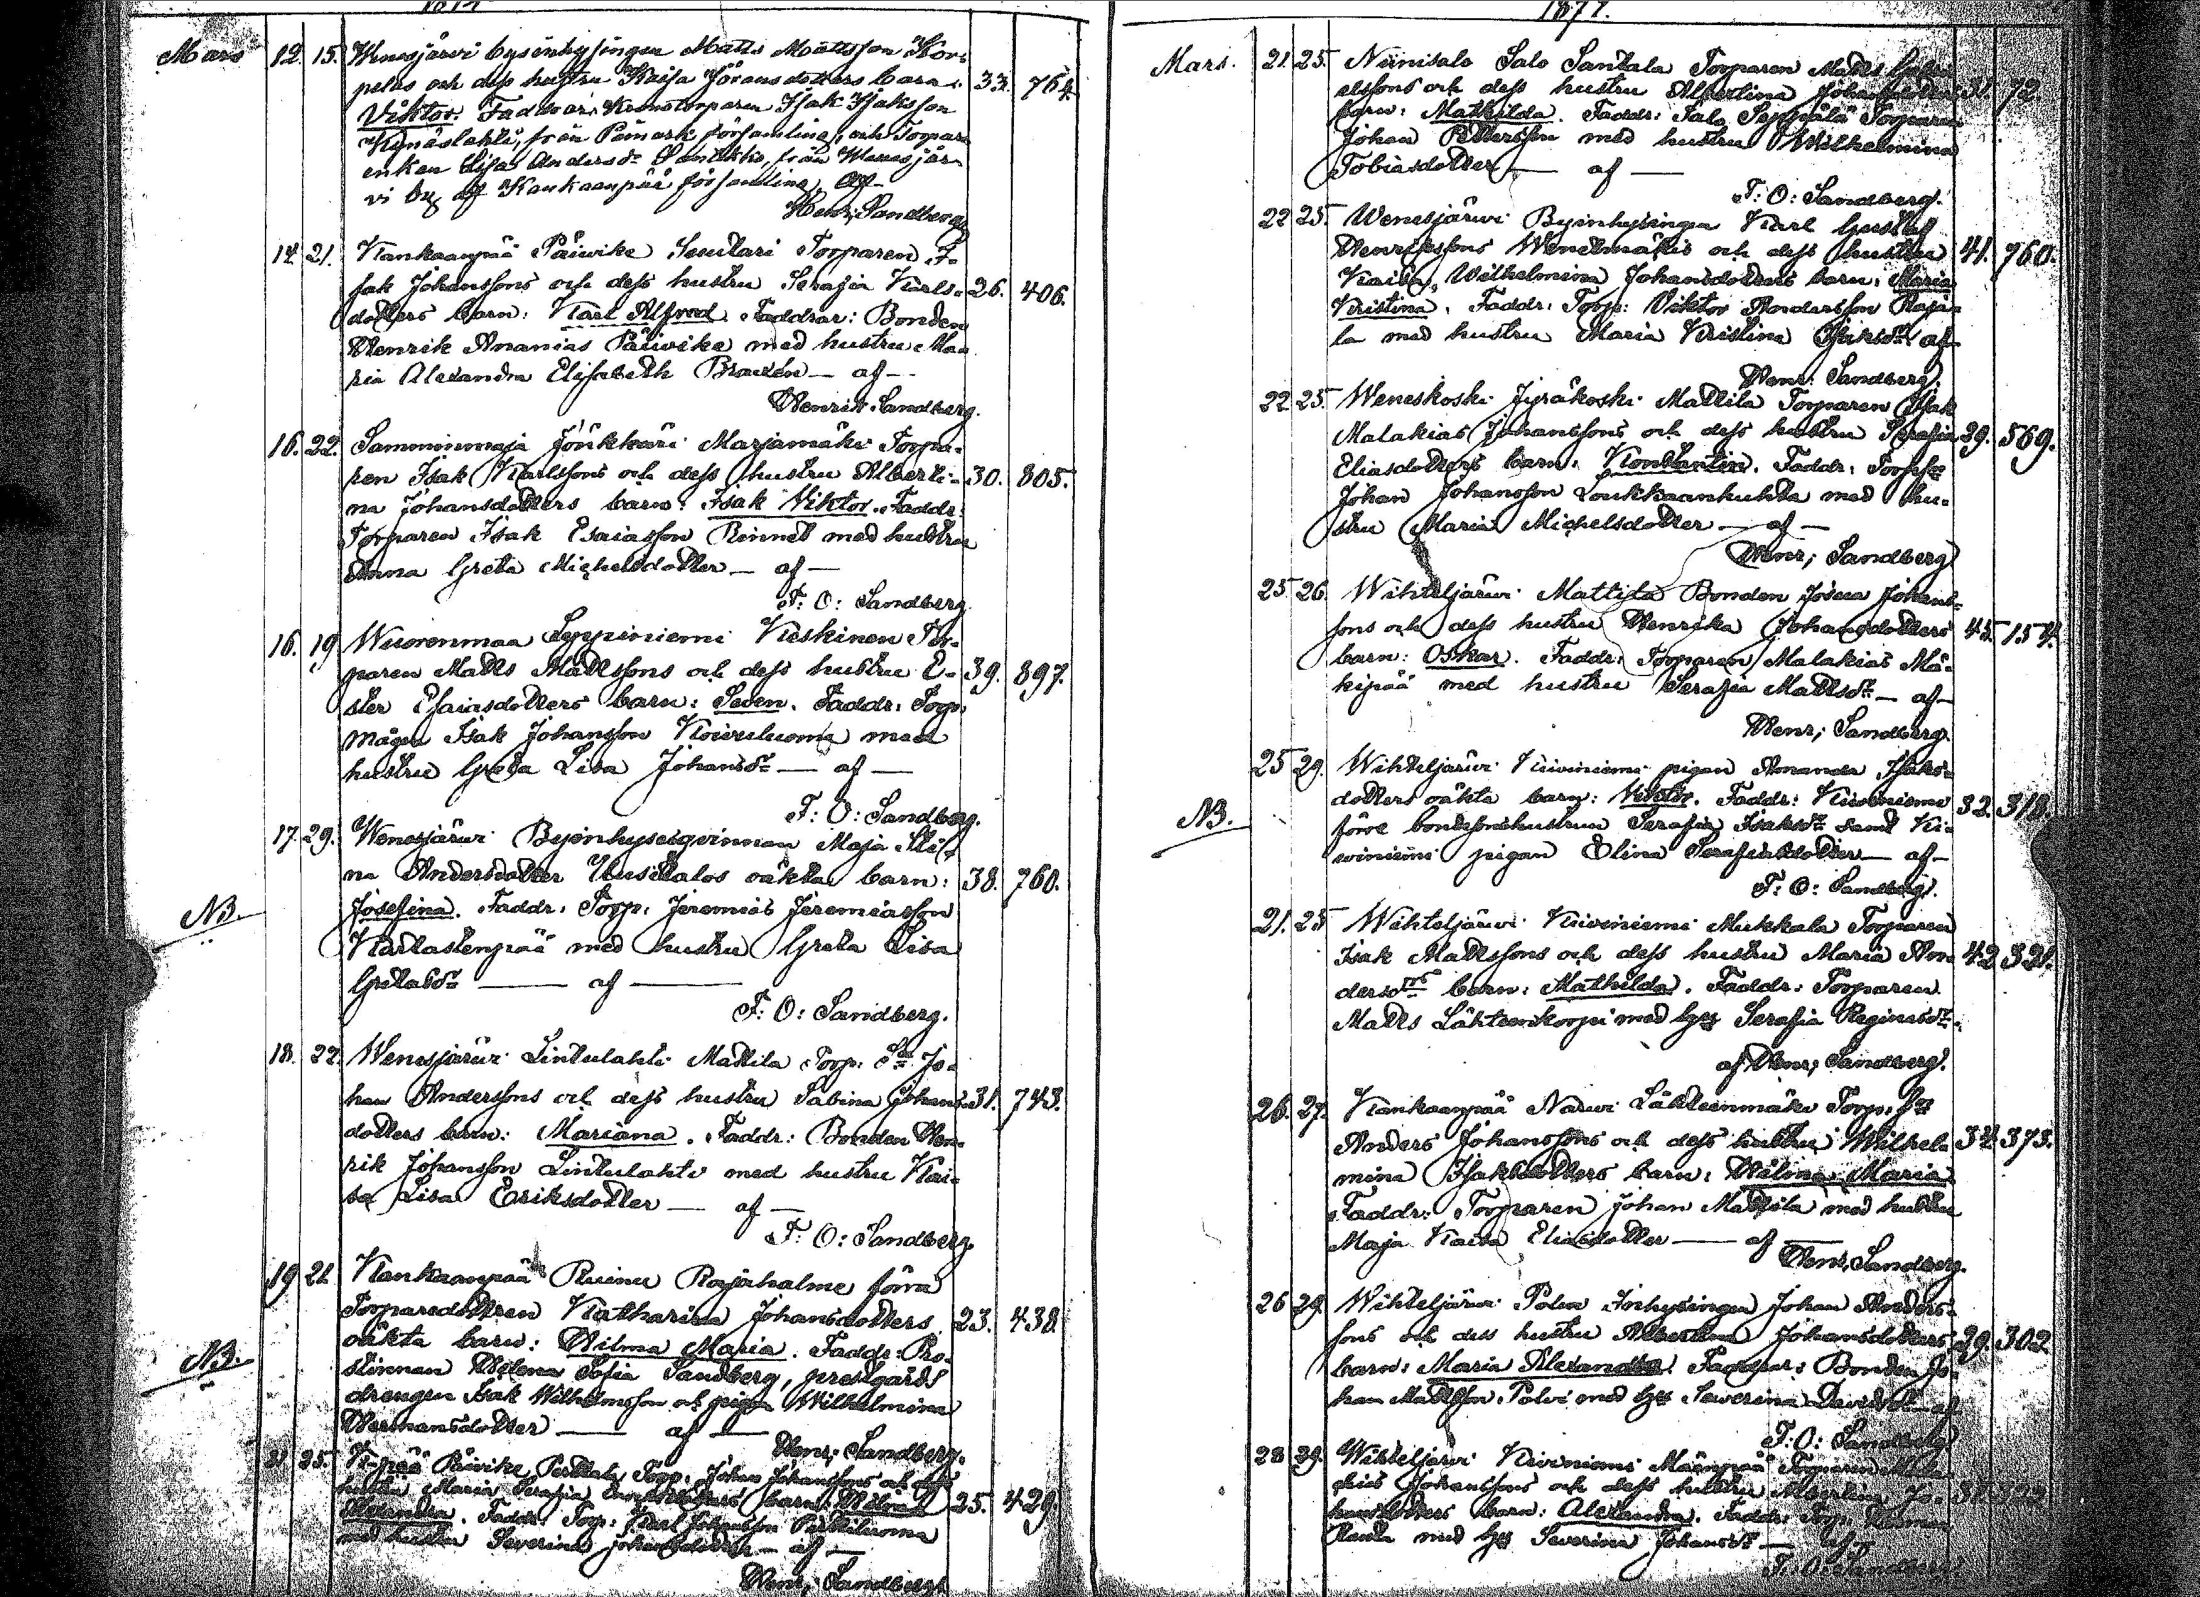 Mars 12. 15. Wenesjärvi byeinhysingen Matts Mattsson Kor-
pelas och dess hustru Kaija Göransdotters barn: 33. 764.
Viktor. Faddrar: Kronotorparen Isak Isaksson
Kynäslahti, från Påmark församling, och Torpare
enkan Lisa Andersdr Santikko, från Wenesjär-
vi by af Kankaanpää församling, af
Henr; Sandberg.
14. 21. Kankaanpää Päiwike Sevtari Torparen I-
sak Johanssons och dess hustru Serafia Karls- 26. 406.
dotters barn: Karl Alfred. Faddrar: Bonden
Henrik Ananias Päiwike med hustru Ma-
ria Alexandra Elisabeth Braxén — af —
Henrik Sandberg.
16. 22. Samminmaja Jönkkäri Marjamäki Torpa-
ren Isak Karlssons och dess hustru Alberti- 30. 805.
na Johansdotters barn: Isak Viktor. Faddr:
Torparen Isak Esaiasson Rinnet med hustru
Anna Greta Michelsdotter — af —
F: O: Sandberg.
16. 19 Wuorenmaa Leppiniemi Kieskinen Tor-
paren Matts Mattssons och dess hustru E- 39. 897.
ster Esaiasdotters barn: Seven. Faddr: Torp:
mågen Isak Johansson Koivuluoma med
hustru Greta Lisa Johansdr — af —
F: O: Sandberg.
17. 29. Wenesjärvi Byeinhysesqvinnan Maja Sti-
na Andersdotter Uusitalos oäkta barn: 38. 760.
NB. Josefina. Faddr: Torp: Jeremias Jeremiasson
Kartastenpää med hustru Greta Lisa
Gretasdr — af —
F: O: Sandberg.
18. 22. Wenesjärvi Lintulahti Mattila Torp: Sn Jo-
han Anderssons och dess hustru Sabina Johans- 31. 743.
dotters barn: Mariana. Faddr: Bonden Hen-
rik Johansson Lintulahti med hustru Kai-
sa Lisa Eriksdotter — af —
F: O: Sandberg.
19 21. Kankaanpää Ruinu Rajahalme förra
Torparedottren Katharina Johansdotters 23. 438.
oäkta barn: Hilma Maria. Faddr: Pro-
NB. stinnan Helena Sofia Sandberg, prestgårds
drengen Isak Wilhelmsson och pigan Wilhelmina
Hermansdotter — af —
Henr; Sandberg.
21 25. K-pää Päivike Perttala Torp: Johan Johanssons och dess
hustru Maria Serafia barn: Hilma 25. 429.
Alexandra. Faddr: Torp: Karl Johansson
med hustru Severina Johansdotter — af —
Henr; Sandberg.
1877.
Mars. 21. 25. Niinisalo Salo Santala Torparen Matts
elssons och dess hustru Albertina Johansdotters 31. 72.
barn: Mathilda. Faddr: Salo Seppälä Torparen
Johan Pettersson med hustru Wilhelmina
Tobiasdotter — af —
F: O: Sandberg.
22 25. Wenesjärvi Byeinhysingen Karl Gustaf
Henrikssons Wenetmäkis och dess hustru 41. 760.
Kaisa Wilhelmina Johansdotters barn: Maria
Kristina. Faddr: Torp: Viktor Andersson Raja-
la med hustru Maria Kristina Isaksdr af
Henr: Sandberg.
22. 25. Weneskoski Jyräkoski Mattila Torparen Isak
Malakias Johanssons och dess hustru Serafia 29. 569.
Eliasdotters barn: Konstantin. Faddr: Torpsn
Johan Johansson Loukkaanhuhta med hu-
stru Maria Michelsdotter — af —
Henr; Sandberg
25 26. Wihteljärvi Mattila Bonden Josua Johans-
sons och dess hustru Henrika Johansdotters 45. 154.
barn: Oskar. Faddr: Torparen Malakias Mä-
kipää med hustru Serafia Mattsdr — af —
Henr; Sandberg.
25 29. Wihteljärvi Kiviniemi pigan Amanda Isaks-
dotters oäkta barn: Viktor. Faddr: Kiviniemi 32. 318.
NB. förre bondesonshustrun Serafia Isaksdr samt Ki-
winiemi pigan Elina Serafiasdotter — af —
F: O: Sandberg.
21. 25 Wihteljärvi Kiviniemi Mukkala Torparen
Isak Mattssons och dess hustru Maria An- 42 321.
dersdrs barn: Mathilda. Faddr: Torparen
Matts Lähteenkorpi med hu Serafia Reginasdr.
af Henr; Sandberg.
26. 27. Kankaanpää Narvi Lähteenmäki Torp: sn
Anders Johanssons och dess hustru Wilhel- 34. 373.
mina Isaksdotters barn: Hilma Maria
Faddr: Torparen Johan Mattila med hustru
Maja Kaisa Eliasdotter — af —
Henr, Sandberg.
26 29. Wihteljärvi Polvi Inhysingen Johan Anders-
sons och dess hustru Albertina Johansdotters 29. 302
barn: Maria Alexandra. Faddrar: Bonden Jo-
han Mattsson Polvi med hu Severina Davidsdr — af
F: O: Sandberg.
28 29. Wihteljärvi Kiviniemi Mäenpää Torparen
Johanssons och dess hustru Albertina Jo-
hansdotters barn: Alexandra. Faddr: Torp:
med hu Severina Johansdr — af —
F: O: Sandberg.